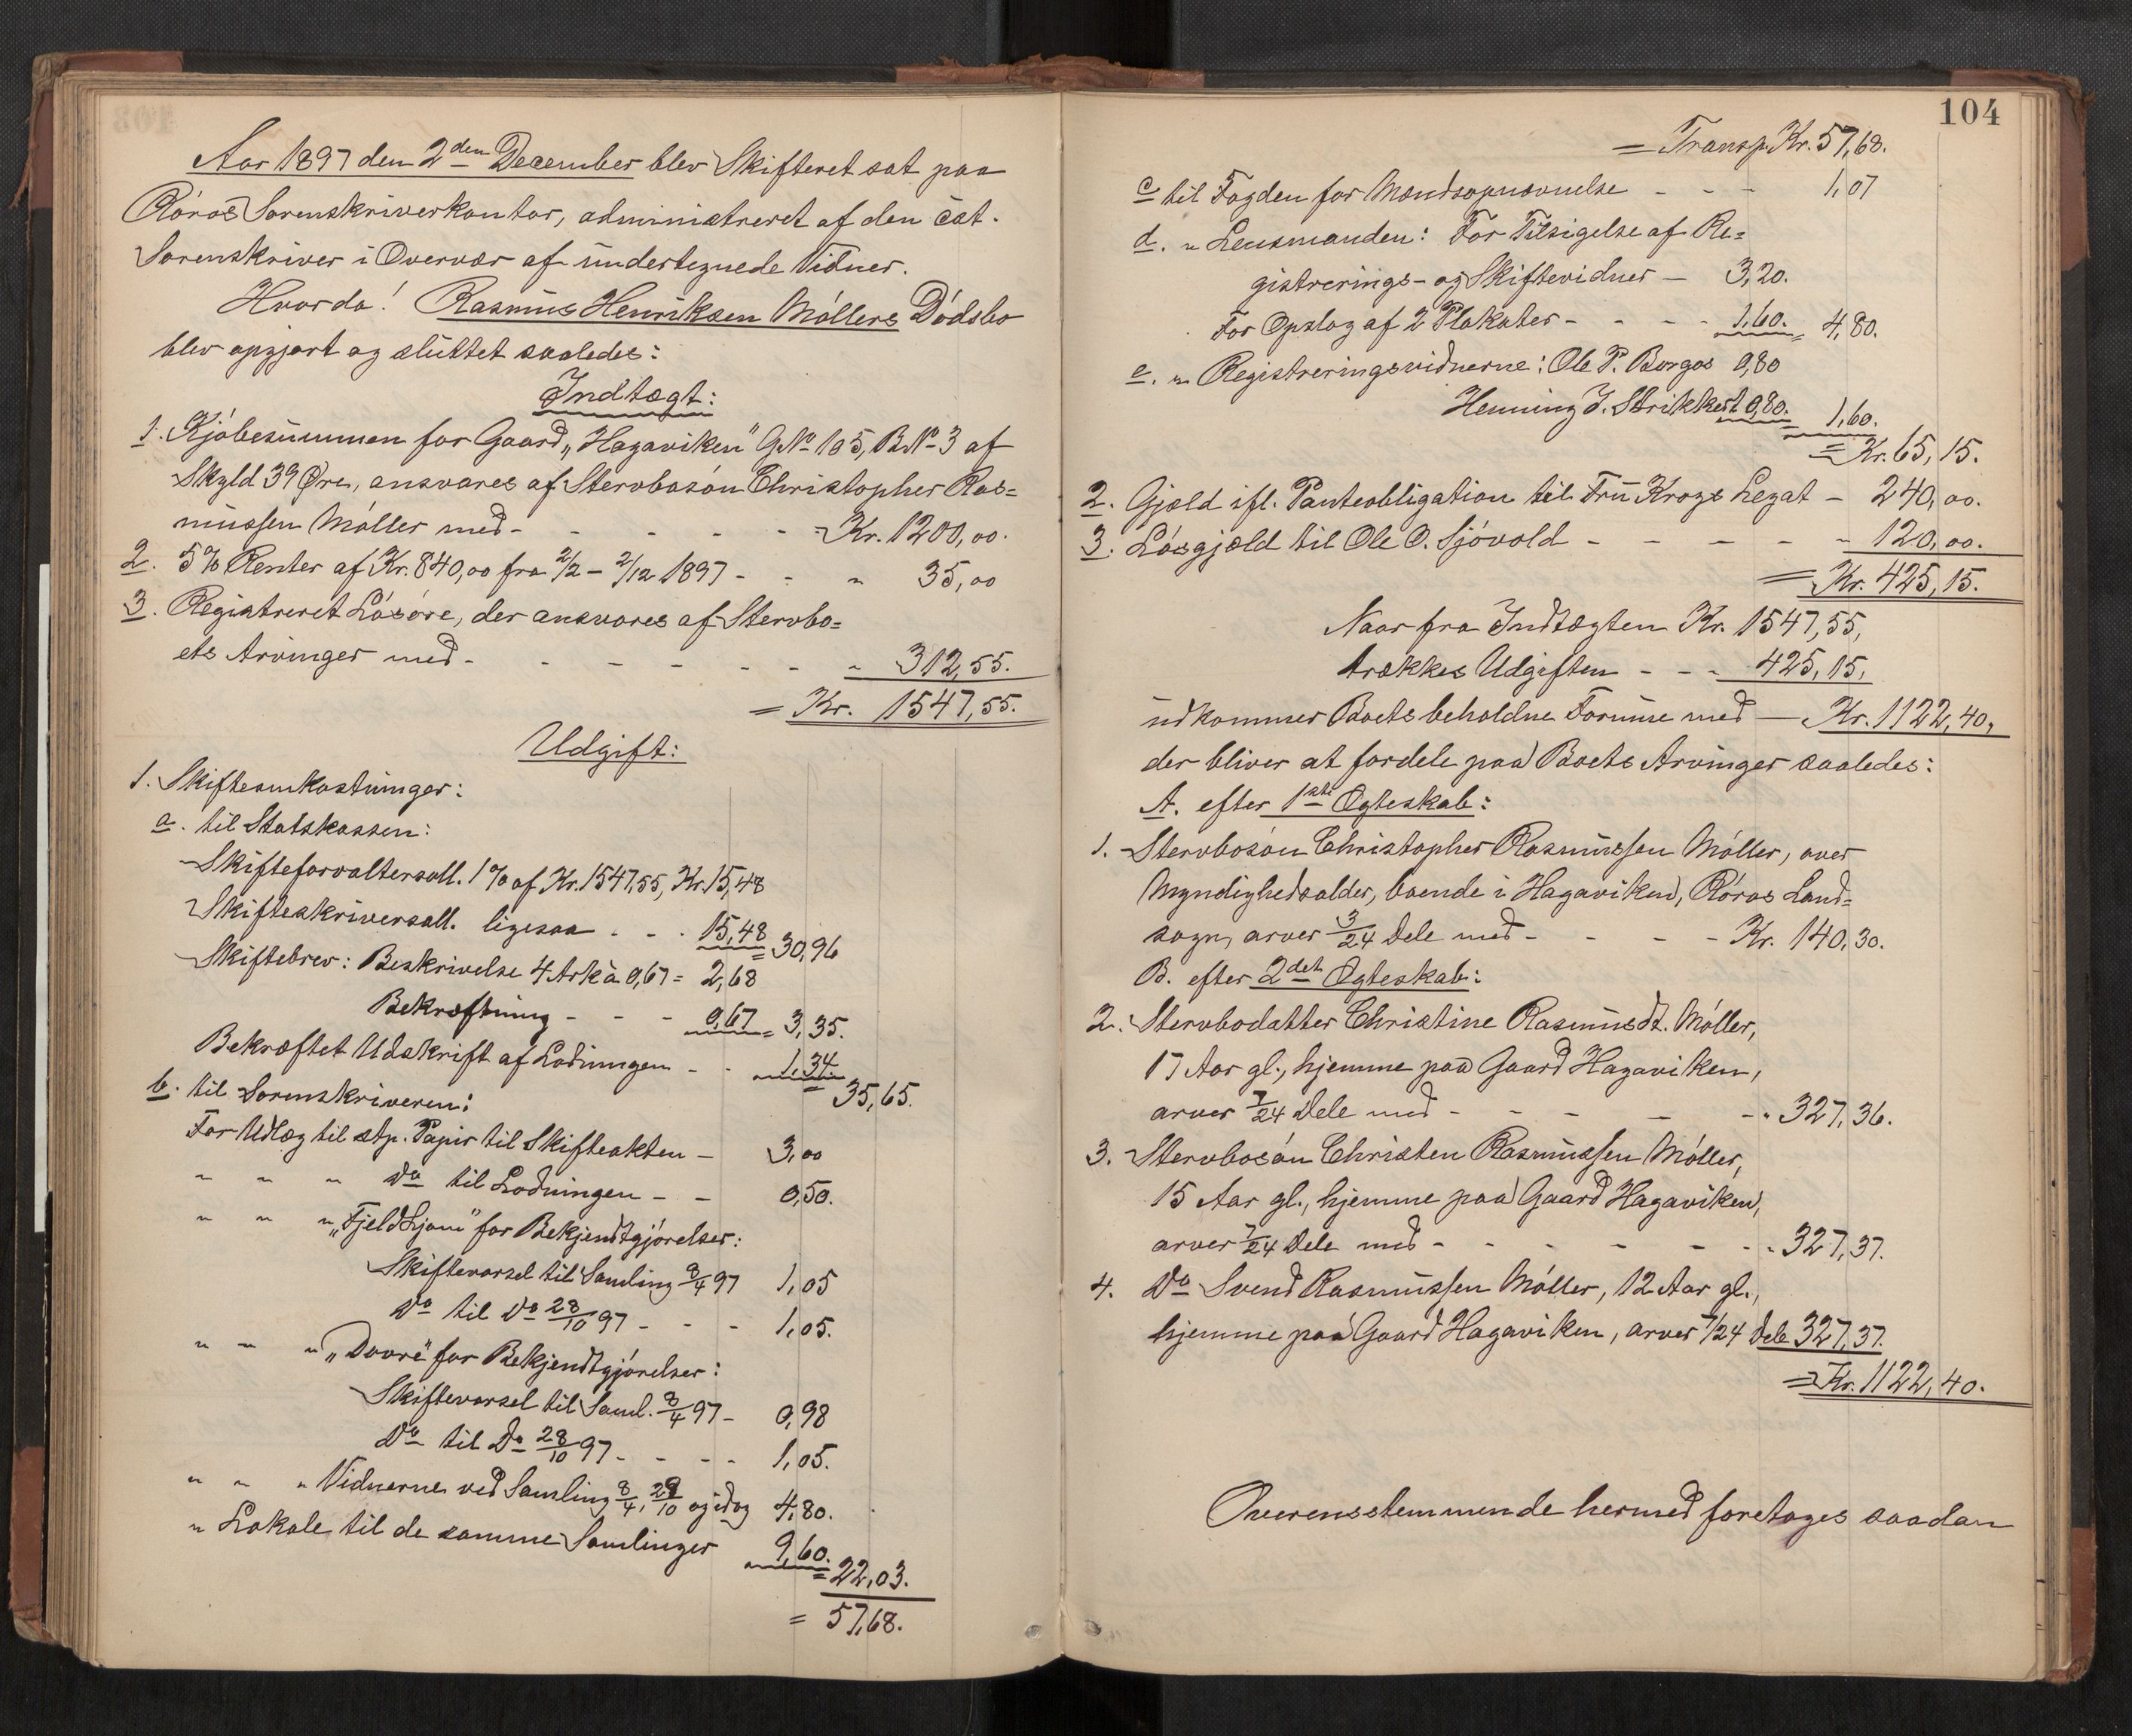 Aar 1897 den 2den December blev Skifteret sat paa
Röros Sorenskriverkontor, administreret af den cst.
Sorenskriver i Overvær af undertegnede Vidner.
Hvorda! Rasmus Henriksen Möllers Dödsbo
blev opgjort og sluttet saaledes:
Indtægt:
1. Kjöbesummen for Gaard „Hagaviken" G.No 105, B.No 3 af
Skyld 39 Øre, ansvares af Stervbosön Christopher Ras=
mussen Möller med - - - - - - Kr. 1200,00.
2. 5% Renter af Kr. 840,00 fra 2/2 - 2/12 1897 - - " 35,00
3. Registreret Lösöre, der ansvares af Stervbo=
ets Arvinger med - - - - - - " 312,55.
= Kr. 1547,55.
Udgift:
1. Skifteomkostninger:
a. til Statskassen:
Skifteforvaltersall. 1% af Kr. 1547,55, Kr. 15,48
Skifteskriversall. ligesaa - - - 15,48 = 30,96
Skiftebrev: Beskrivelse 4 Ark à 0,67 = 2,68
Bekræftning - - - 0,67 = 3,35.
Bekræftet Udskrift af Lodningen - - 1,34.
= 35,65.
b. til Sorenskriveren:
For Udlæg til stp. Papir til Skifteakten - 3,00
" " " Do til Lodningen - - 0,50.
" " " „Fjeldljom" for Bekjendtgjörelser:
Skiftevarsel til Samling 8/4 97 1,05
Do til Do 28/10 97 - - - 1,05.
" " " „Dovre" for Bekjendtgjörelser:
Skiftevarsel til Saml. 8/4 97 - 0,98
Do til Do 28/10 97 - - - - 1,05.
" " " Vidnerne ved Samling 8/4, 28/10 og idag 4,80.
" Lokale til de samme Samlinger 9,60.
= 22,03.
= 57,68.
104
= Transp. Kr. 57,68.
c til Fogden for Mandsopnævnelse - - - 1,07
d. " Lensmanden: For Tilsigelse af Re=
gistrerings- og Skiftevidner - 3,20.
For Opslag af 2 Plakater - - - - 1,60. = 4,80.
e. " Registreringsvidnerne: Ole P. Borgos 0,80
Henning J. Strikkert 0,80. = 1,60.
= Kr. 65,15.
2. Gjæld ifl. Panteobligation til Fru Krogs Legat - 240,00.
3. Lösgjæld til Ole O. Sjövold - - - - - 120,00.
= Kr. 425,15.
Naar fra Indtægten Kr. 1547,55,
trækkes Udgiften - - - 425,15,
udkommer Boets beholdne Formue med - Kr. 1122,40,
der bliver at fordele paa Boets Arvinger saaledes:
A. efter 1ste Ægteskab:
1. Stervbosön Christopher Rasmussen Möller, over
Myndighedsalder, boende i Hagaviken, Röros Land=
sogn, arver 3/24 Dele med - - - - Kr. 140,30.
B. efter 2det Ægteskab:
2. Stervbodatter Christine Rasmusdt. Möller,
17 Aar gl., hjemme paa Gaard Hagaviken,
arver 7/24 Dele med - - - - - " 327,36.
3. Stervbosön Christen Rasmussen Möller,
15 Aar gl., hjemme paa Gaard Hagaviken,
arver 7/24 Dele med - - - - - - " 327,37.
4. Do Svend Rasmussen Möller, 12 Aar gl.,
hjemme paa Gaard Hagaviken, arver 7/24 Dele 327,37.
= Kr. 1122,40.
Overensstemmende hermed foretages saadan